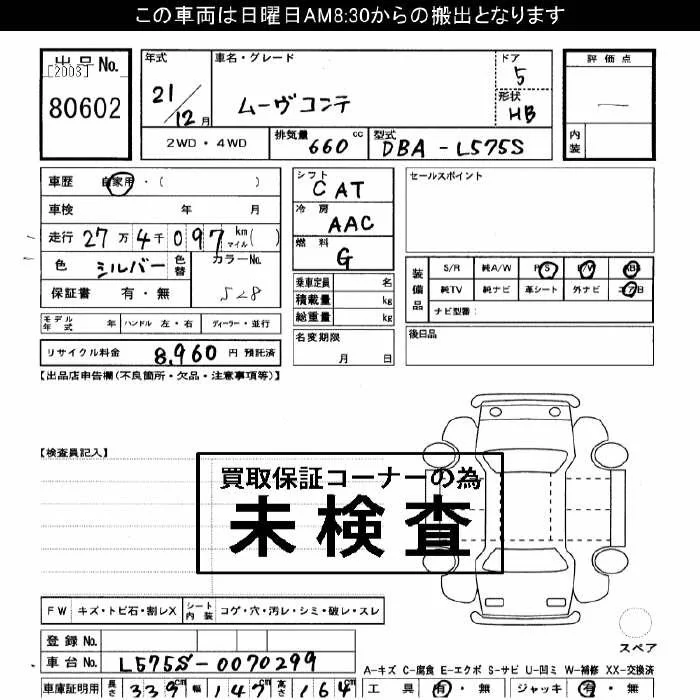 この車両は日曜日AM8:30からの搬出となります
出品No. 年式 車名・グレード ドア 評価点
[2003] 21/12月 ムーヴコンテ 5 —
80602 形状 HB
2WD・4WD 排気量 660 cc 型式 DBA-L575S 内装
車歴 自家用・( ) シフト CAT セールスポイント
車検 年 月 冷房 AAC
走行 27万4千097 km マイル( ) 燃料 G
色 シルバー 色替 カラーNo. 528
保証書 有・無
乗車定員 名
積載量 kg
総重量 kg
装備品 S/R 純A/W P/S P/W ABS
純TV 純ナビ 革シート 外ナビ エアB
ナビ型番:
モデル年式 年 ハンドル 左・右 ディーラー・並行
名変期限 月 日
後日品
リサイクル料金 8,960 円 預託済
【出品店申告欄(不良箇所・欠品・注意事項等)】
【検査員記入】
買取保証コーナーの為
未検査
FW キズ・トビ石・割レX シート内装 コゲ・穴・汚レ・シミ・破レ・スレ
スペア
登録No.
車台No. L575S-0070299
A-キズ C-腐食 E-エクボ S-サビ U-凹ミ W-補修 XX-交換済
車庫証明用 長さ 339cm 幅 147cm 高さ 164cm 工具 有・無 ジャッキ 有・無